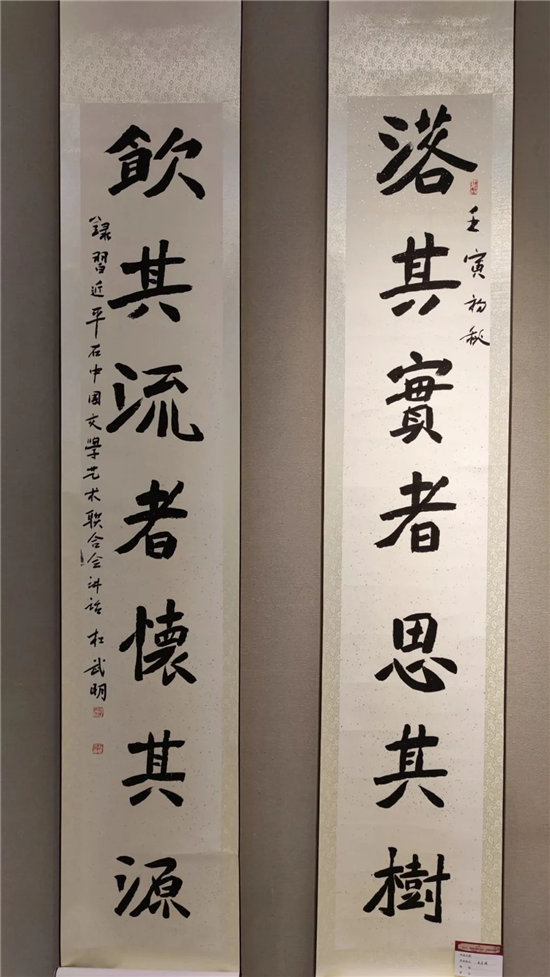 落其實者思其樹
壬寅初秋
飲其流者懷其源
錄習近平在中國文學艺术联合会讲话 杜武明